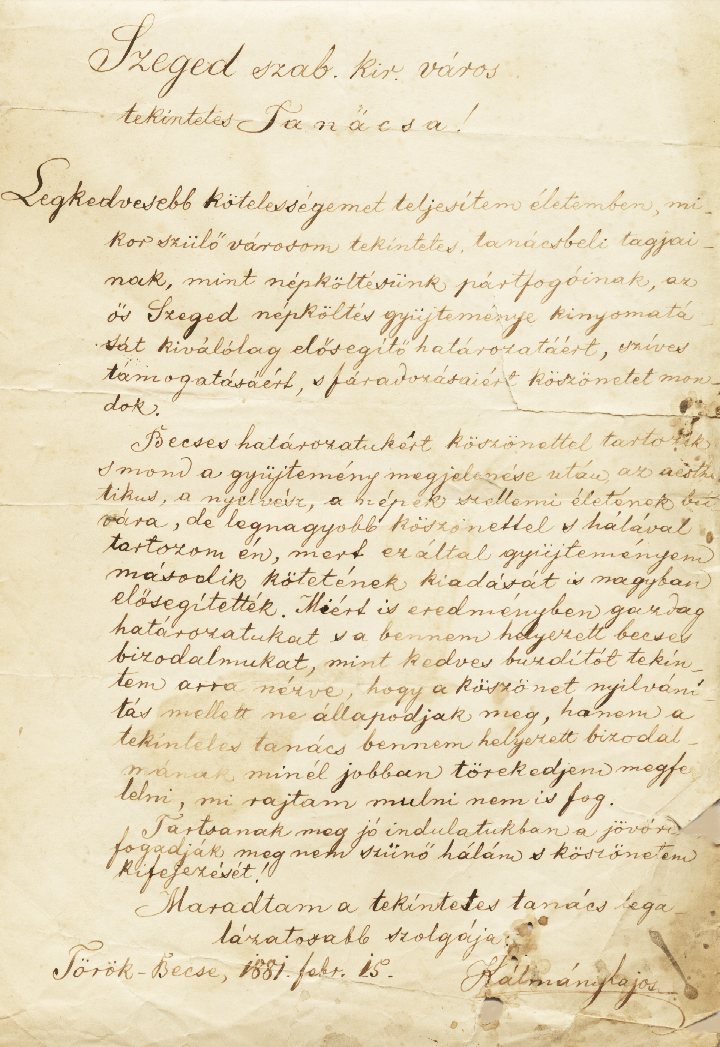 Szeged szab. kir. város
tekintetes Tanácsa!
Legkedvesebb kötelességemet teljesítem életemben, mi-
kor szülő városom tekintetes tanácsbeli tagjai-
nak, mint népköltésünk pártfogóinak, az
ős Szeged népköltés gyüjteménye kinyomatá-
sát kiválólag elősegítő határozatáért, szíves
támogatásáért, s fáradozásaiért köszönetet mon
dok.
Becses határozatukért köszönettel tartozik
s mond a gyüjtemény megjelenése után az aesthe
tikus, a nyelvész, a népek szellemi életének bú
vára, de legnagyobb köszönettel s hálával
tartozom én, mert ez által gyüjteményem
második kötetének kiadását is nagyban
elősegítették. Miért is eredményben gazdag
határozatukat s a bennem helyezett becses
bizodalmukat, mint kedves buzdítót tekin-
tem arra nézve, hogy a köszönet nyilvání-
tás mellett ne állapodjak meg, hanem a
tekintetes tanács bennem helyezett bizodal-
mának minél jobban törekedjem megfe
lelni, mi rajtam mulni nem is fog.
Tartsanak meg jó indulatukban a jövőre
fogadják meg nem szünő hálám s köszönetem
kifejezését!
Maradtam a tekintetes tanács lega-
lázatosabb szolgája:
Török-Becse, 1881. febr. 15. Kálmány Lajos